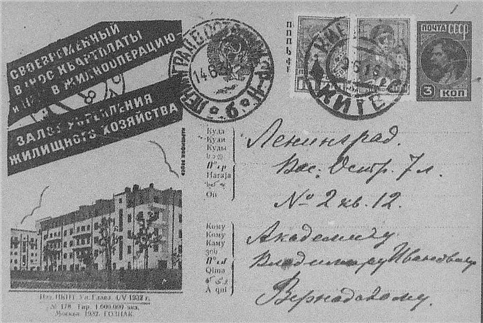 СВОЕВРЕМЕННЫЙ
ВЗНОС КВАРТПЛАТЫ
В ЖИЛКООПЕРАЦИЮ
ЗАЛОГ УКРЕПЛЕНИЯ
ЖИЛИЩНОГО ХОЗЯЙСТВА
14.6
ПОЧТА СССР
3 КОП
Куда
Куди
Куды
Haraja
On
Ленинград.
Вас. Остр. 7 л.
№ 2 кв. 12.
Кому
Кому
Каму
Qima
A qui
Академику
Владимиру Ивановичу
Вернадскому.
Изд. НКПТ 4/V 1932 г.
№ 178. Тир. 1.000.000 экз.
Москва. 1932. ГОЗНАК.